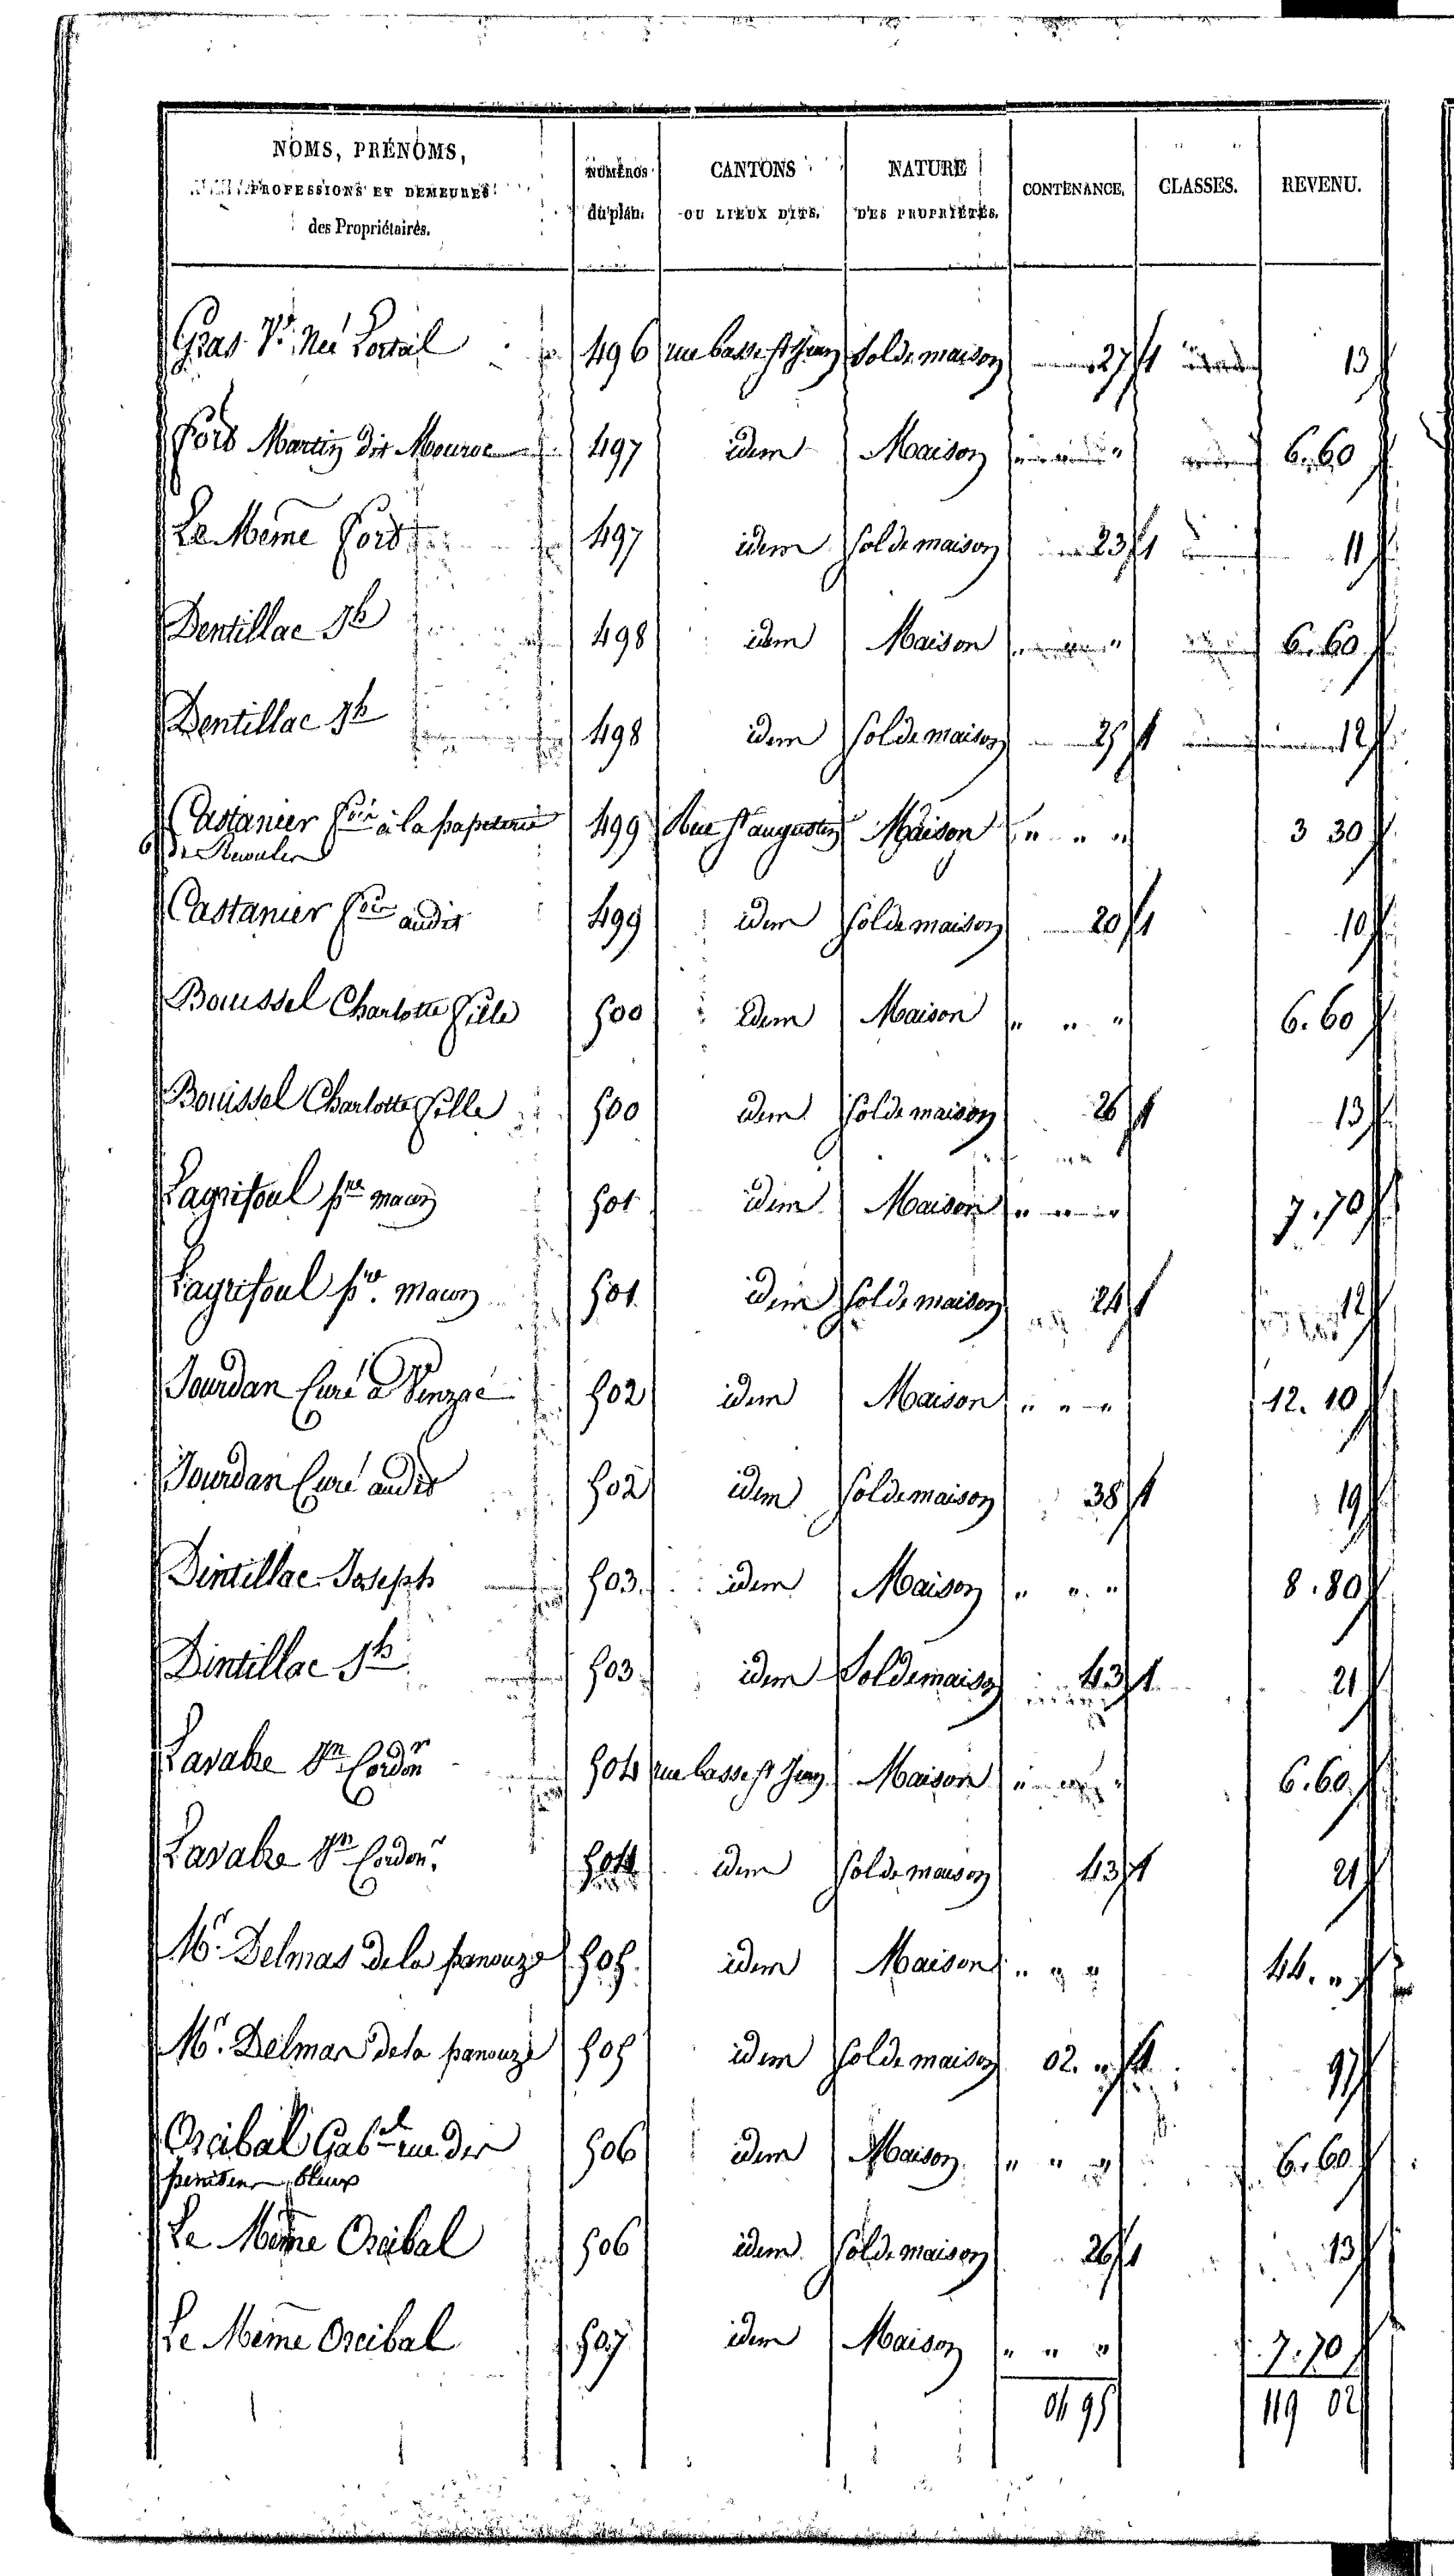 NOMS, PRÉNOMS, PROFESSIONS ET DEMEURES des Propriétaires. | NUMÉROS du plan. | CANTONS OU LIEUX DITS. | NATURE DES PROPRIÉTÉS. | CONTENANCE. | CLASSES. | REVENU.
Gras Ve. Née Portail 496 rue basse St Jean Sol de maison 27 1 13
Fort Martin dit 497 idem Maison " 6.60
Le Même Fort 497 idem Sol de maison 23 1 11
Dentillac Jh 498 idem Maison " 6.60
Dentillac Jh 498 idem Sol de maison 25 1 12
Castanier à la papeterie 499 Rue St augustin Maison " " " 3 30
Castanier audit 499 idem Sol de maison 20 1 10
Bouissel Charlotte fille 500 Idem Maison " " " 6.60
Bouissel Charlotte fille 500 idem Sol de maison 26 1 13
Lagrifoul pre maçon 501 idem Maison " " " 7.70
Lagrifoul pre. maçon 501. idem Sol de maison 24 1 12
Jourdan Curé à Venzac 502 idem Maison " " " 12. 10
Jourdan Curé audit 502 idem Sol de maison 38 1 19
Dintillac Joseph 503. idem Maison " " " 8.80
Dintillac Jh 503. idem Sol de maison 43 1 21
Lavabre Jn Cordonr 504 rue basse St Jean Maison " " " 6.60
Lavabre Jn Cordonr. 504 idem Sol de maison 43 1 21
Mr. Delmas de la panouze 505. idem Maison " " " 44. "
Mr. Delmas de la panouze 505 idem Sol de maison 02. " 1 97
Orcibal Gabel rue des 506 idem Maison " " " 6.60
peniten bleux
Le Même Orcibal 506 idem Sol de maison 26 1 13
Le Même Orcibal 507 idem Maison " " " 7.70
04 95 119 02